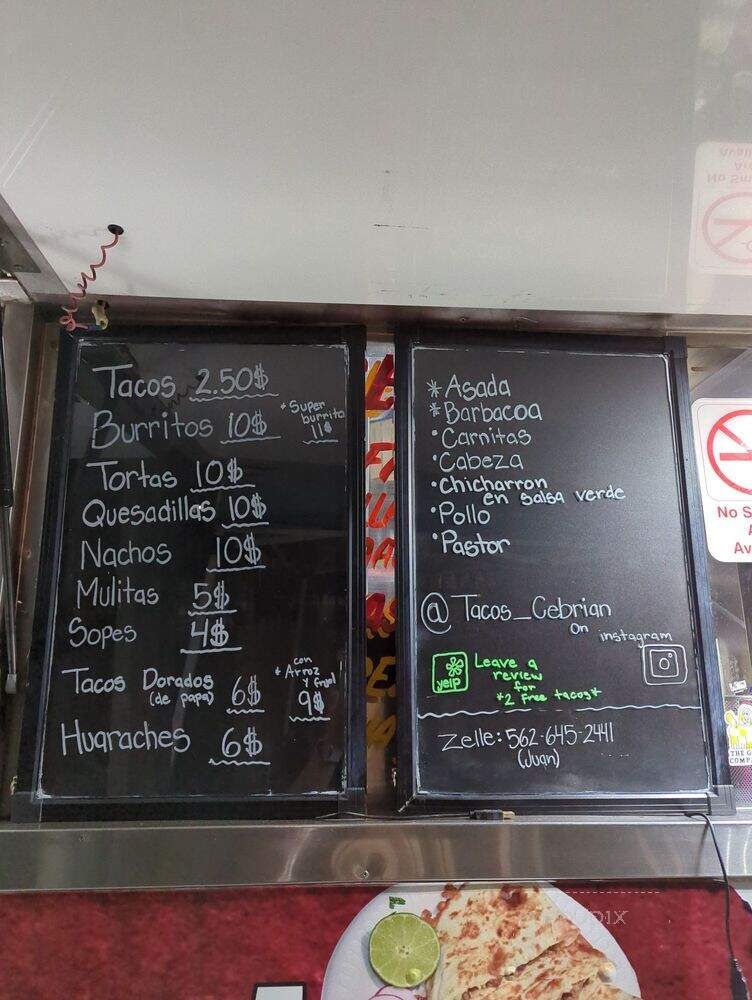 Tacos 2.50$
Burritos 10$
* Super
burrito
11$
Tortas 10$
Quesadillas 10$
Nachos 10$
Mulitas 5$
Sopes 4$
Tacos Dorados
(de papa)
6$
con
* Arroz
y frijol
9$
Huaraches 6$
* Asada
* Barbacoa
• Carnitas
• Cabeza
• Chicharron
en salsa verde
• Pollo
• Pastor
@ Tacos_Cebrian
on instagram
yelp
Leave a
review
for
*2 Free tacos*
Zelle: 562-645-2441
(Juan)
No S
Av
THE G
COMP